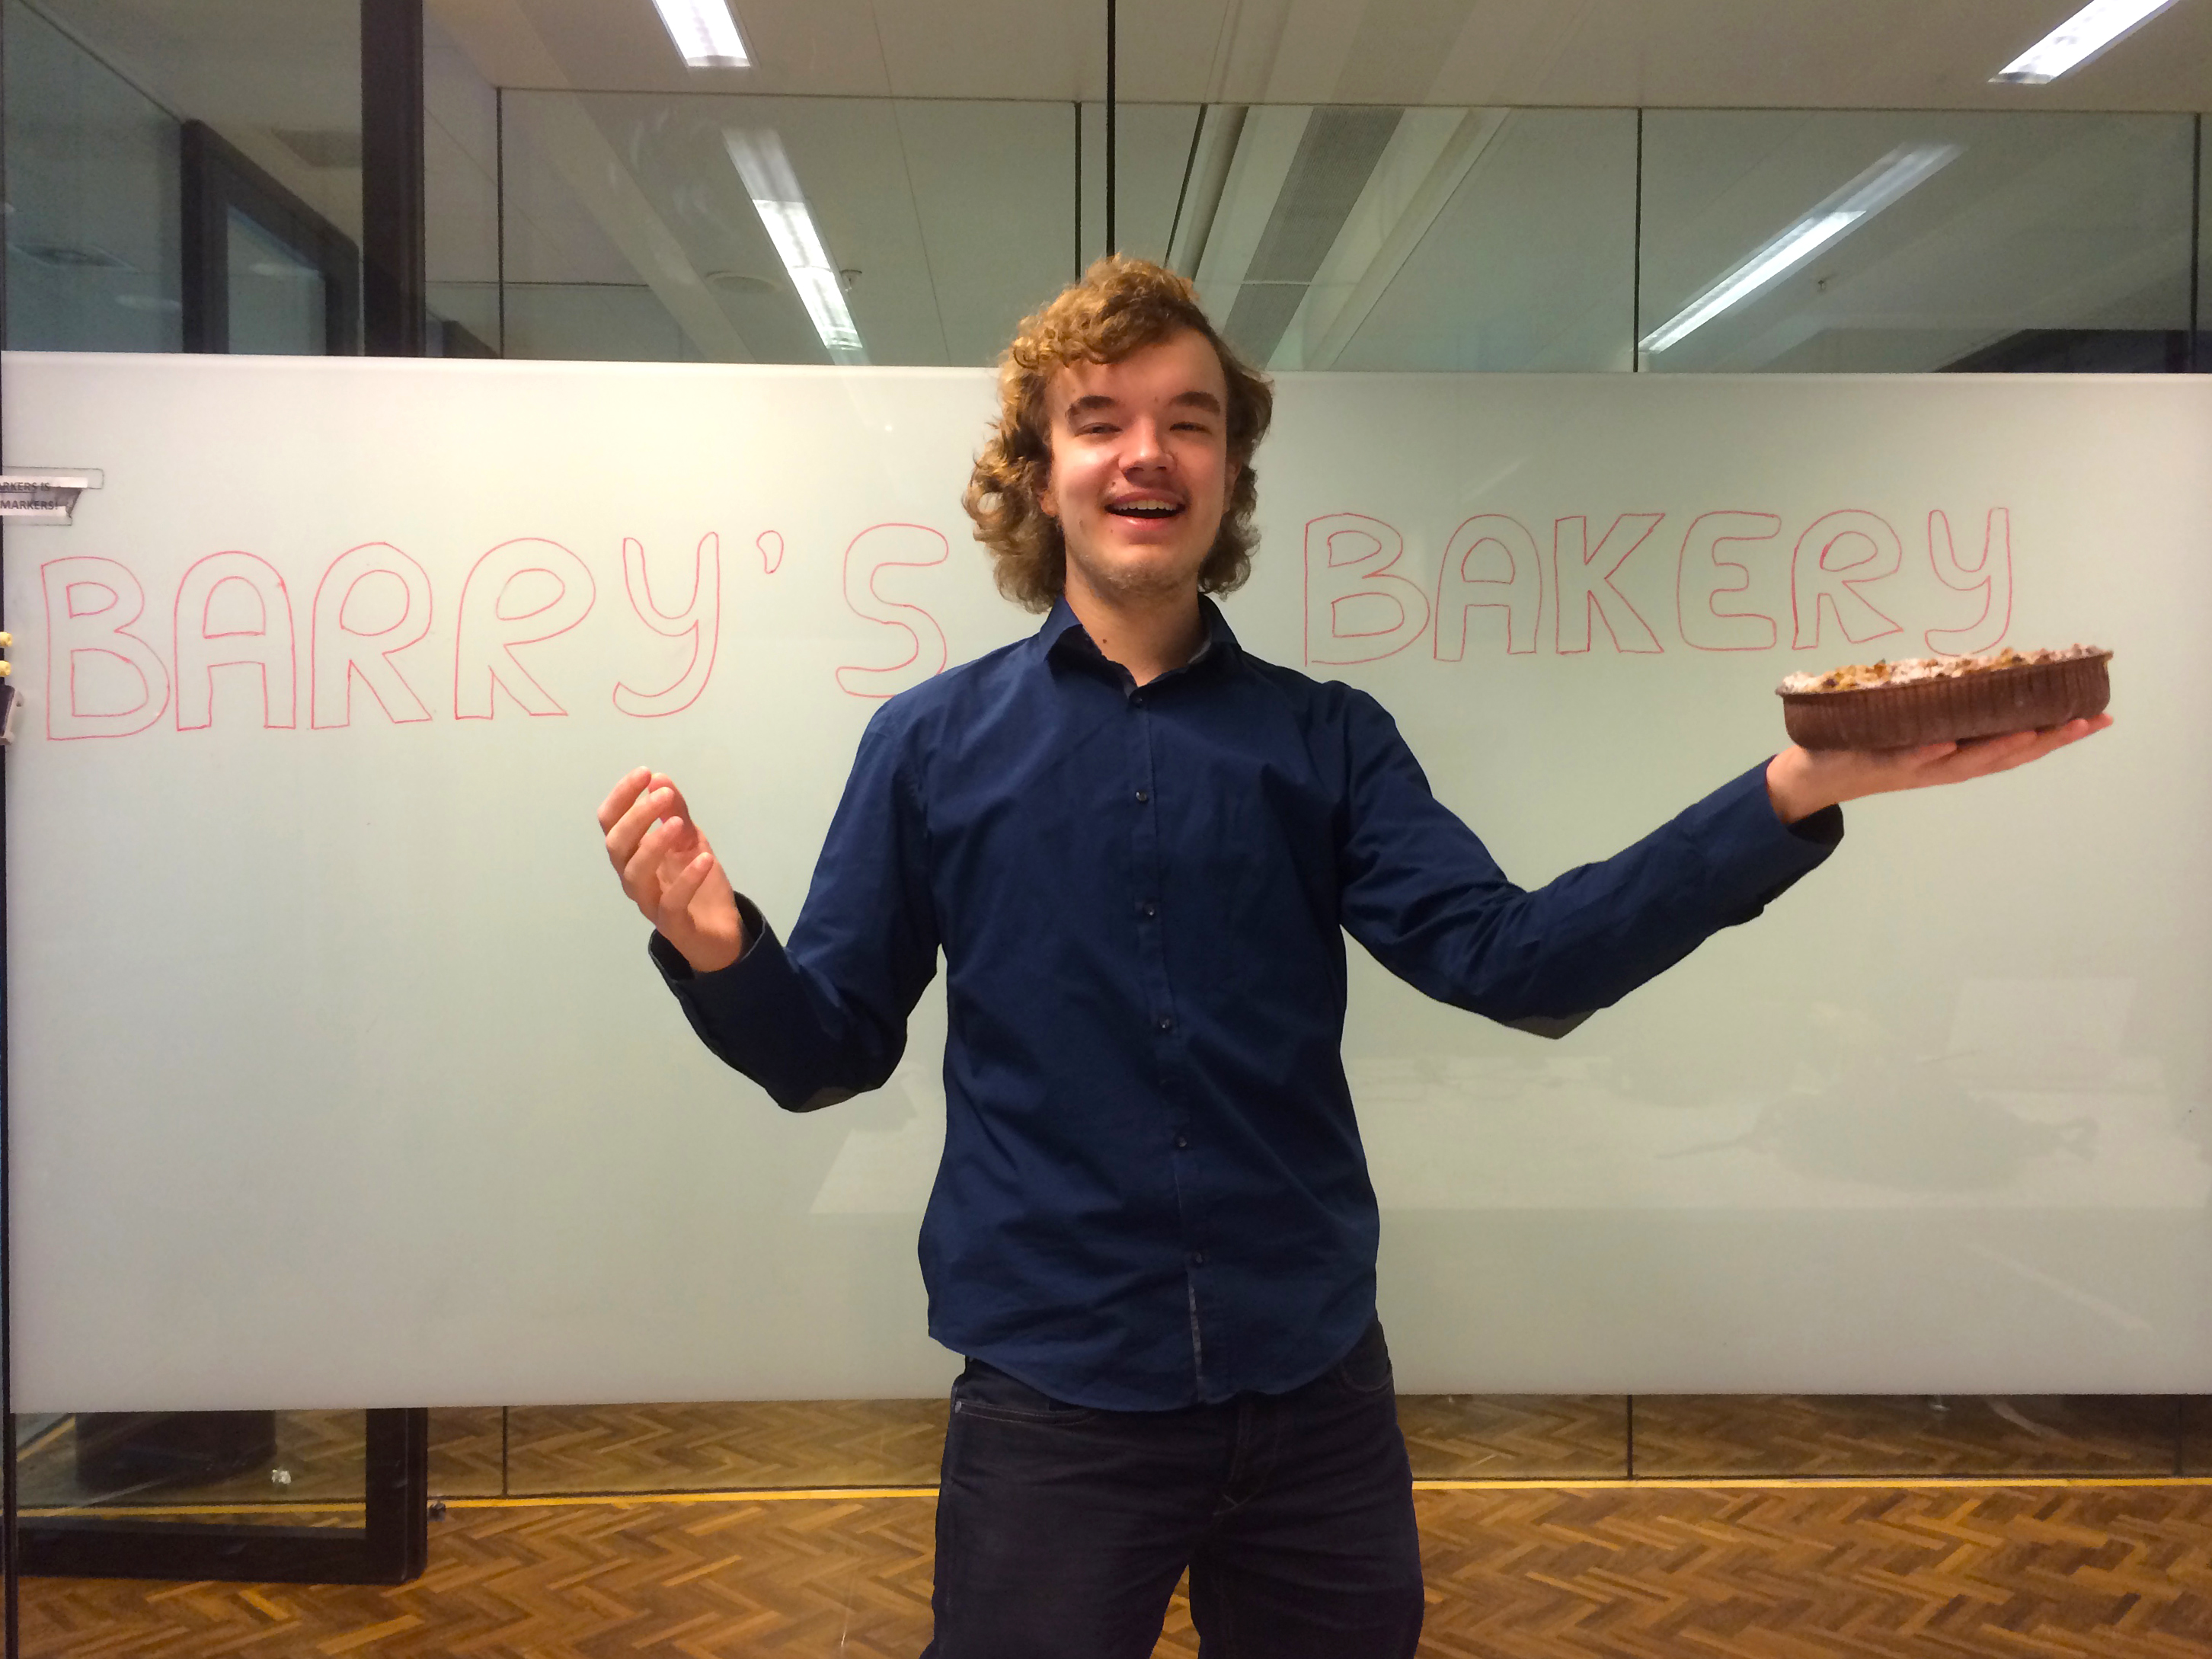 ARKERS IS
MARKERS!
BARRY'S BAKERY